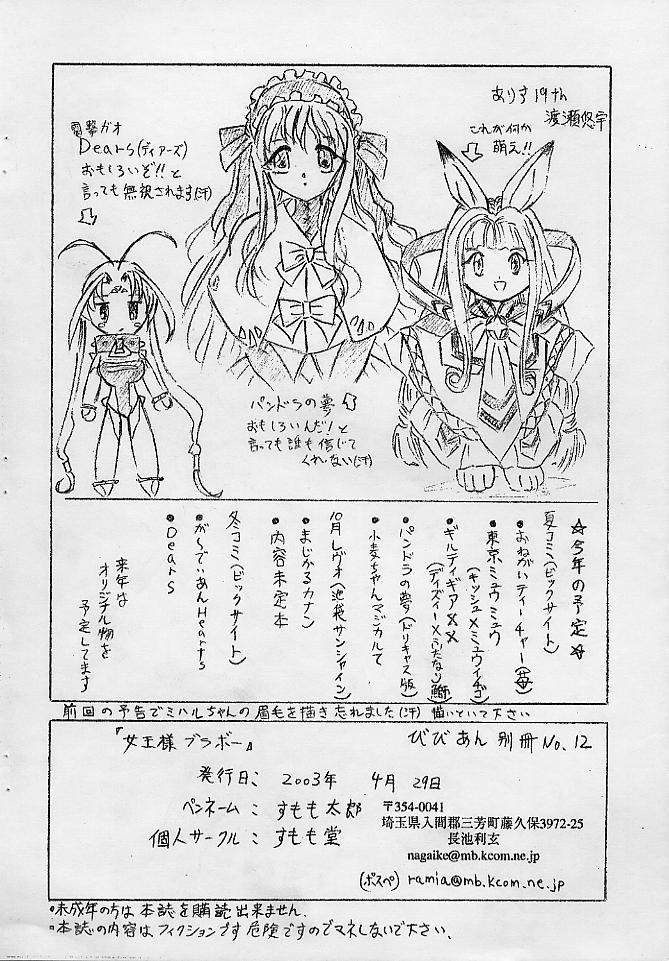 ありす19th
渡瀬悠宇
これが何か
萌え!!
電撃ガオ
Dears(ディアーズ)
おもしろいぞ!!と
言っても無視されます(汗)
パンドラの夢
おもしろいんだ!と
言っても誰も信じて
くれない(汗)
☆今年の予定☆
夏コミ(ビックサイト)
•おねがいティーチャー(苺)
•東京ミュウミュウ
(キッシュ×ミュウイチゴ)
•ギルティギア××
(ディズィー×ふたなり)
•パンドラの夢(ドリキャス版)
•小麦ちゃんマジカルて
10月レヴォ(池袋サンシャイン)
•まじかるカナン
•内容未定本
冬コミ(ビックサイト)
•がぁでぃあんHearts
•Dears
来年は
オリジナル物を
予定してます
前回の予告でミハルちゃんの眉毛を描き忘れました(汗) 描いといて下さい
『女王様 ブラボー』 びびあん 別冊 No.12
発行日: 2003年 4月 29日
ペンネーム: すもも太郎
個人サークル: すもも堂
〒354-0041
埼玉県入間郡三芳町藤久保3972-25
長池利玄
nagaike@mb.kcom.ne.jp
(ポスペ) ramia@mb.kcom.ne.jp
•未成年の方は本誌を購読出来ません.
•本誌の内容はフィクションです 危険ですのでマネしないで下さい.